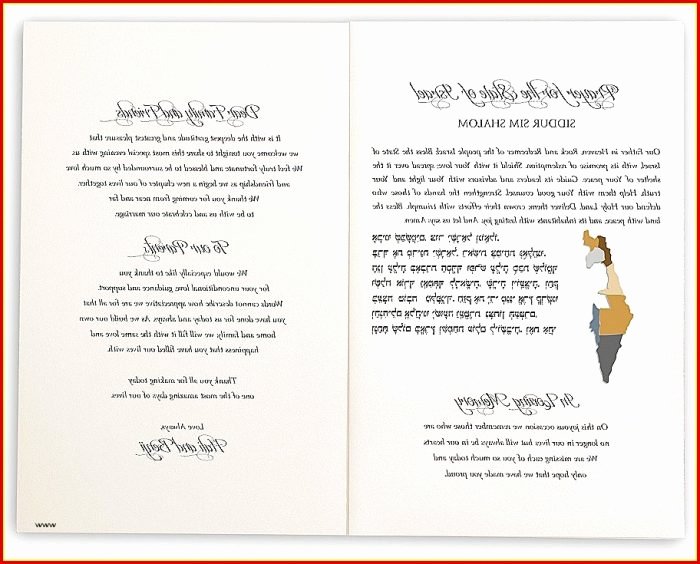 Dear Family and Friends
It is with the deepest gratitude and greatest pleasure that
we welcome you tonight to share this most special evening with us
We feel truly fortunate and blessed to be surrounded by so much love
and friendship as we begin a new chapter of our lives together.
We thank you for coming from near and far
to be with us and celebrate our marriage.
To our Parents
We would especially like to thank you
for your unconditional love, guidance and support.
Words cannot describe how appreciative we are for all that
you have done for us today and always. As we build our own
home and family, we will fill it with the same love and
happiness that you have filled our lives with.
Thank you all for making today
one of the most amazing days of our lives.
Love Always,
Hali and Benji
Prayer for The State of Israel
SIDDUR SIM SHALOM
Our Father in Heaven, Rock and Redeemer of the people Israel; Bless the State of
Israel, with its promise of redemption. Shield it with Your love; spread over it the
shelter of Your peace. Guide its leaders and advisors with Your light and Your
truth. Help them with Your good counsel. Strengthen the hands of those who
defend our Holy Land. Deliver them; crown their efforts with triumph. Bless the
land with peace, and its inhabitants with lasting joy. And let us say: Amen.
In Loving Memory
On this joyous occasion we remember those who are
no longer in our lives but will be always in our hearts
We are missing each of you so much today and
only hope that we have made you proud.
www